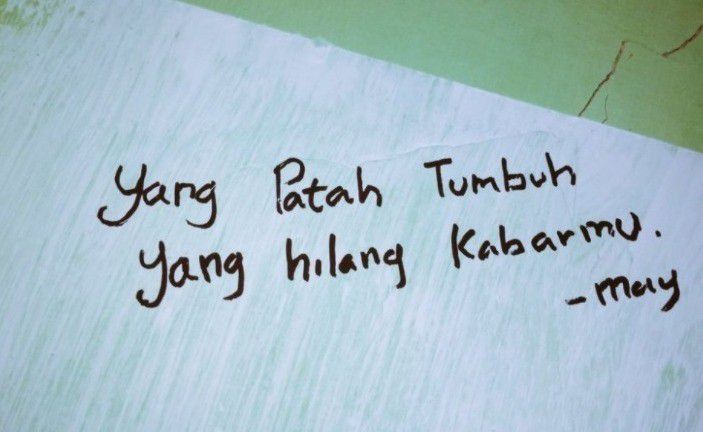 Yang Patah Tumbuh
Yang hilang Kabarmu.
- May